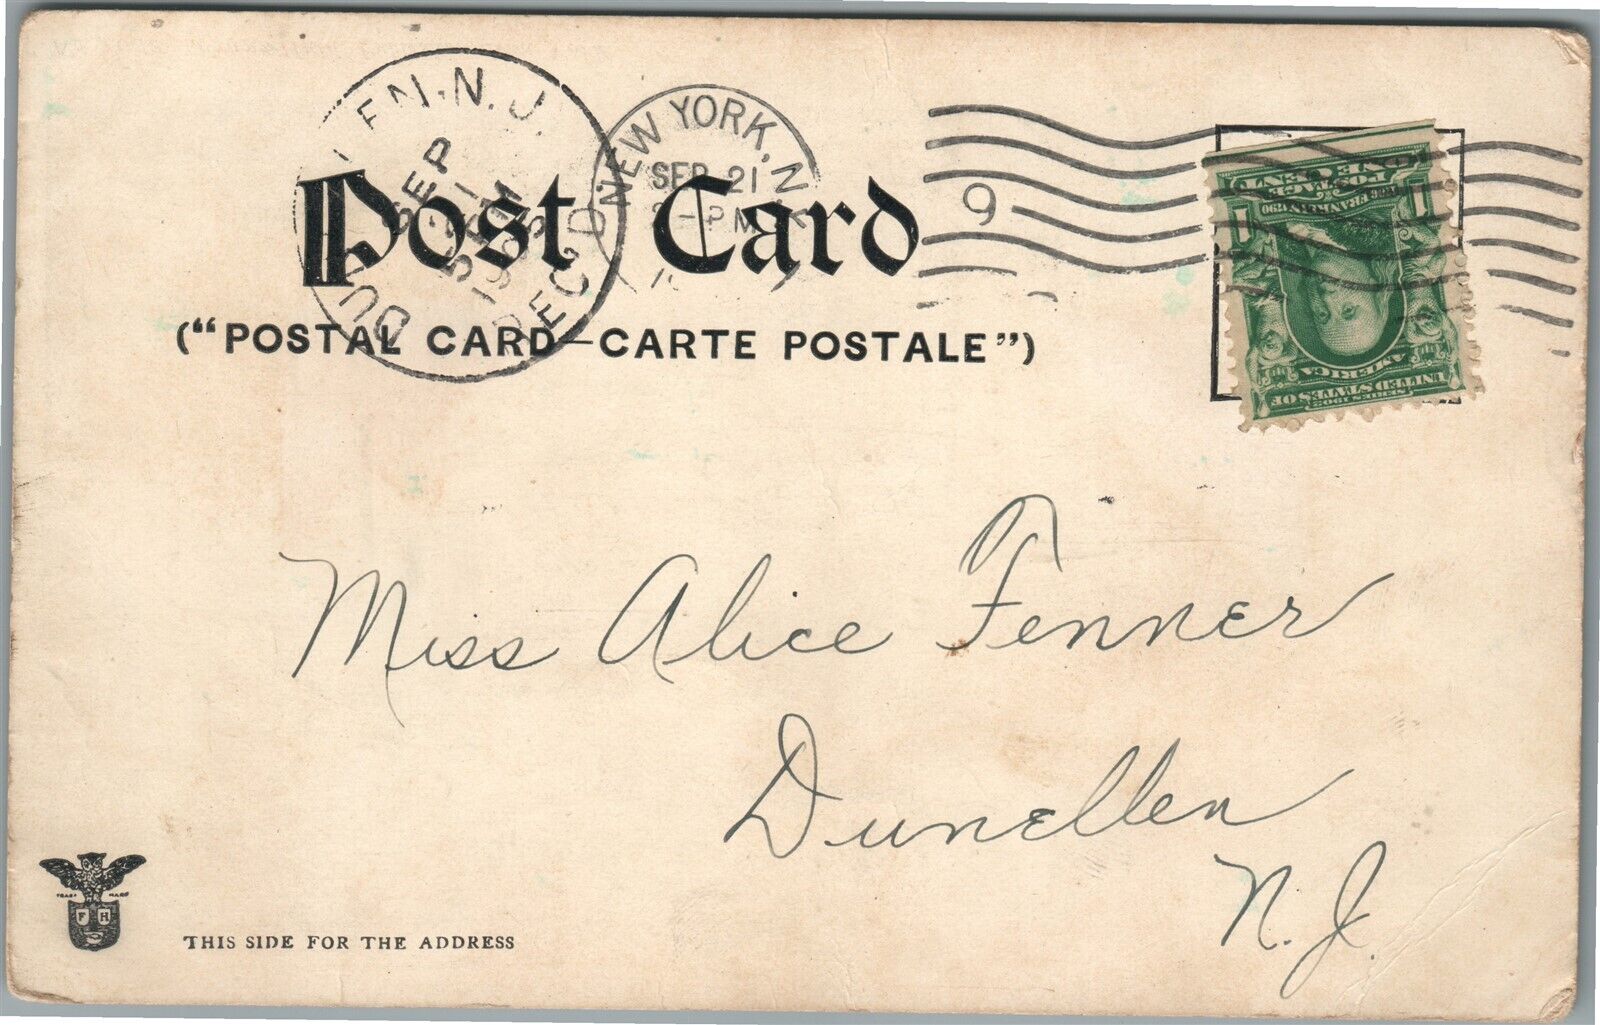 DU EN. N. J.
SEP
21
5 PM
1905
REC'D
NEW YORK, N.
SEP 21
-PM
9
Post Card
("POSTAL CARD—CARTE POSTALE")
SERIES 1902
UNITED STATES OF
AMERICA
1706 FRANKLIN 1790
1 1
POSTAGE
ONE CENT
Miss Alice Fenner
Dunellen
N. J.
TRADE MARK
F H
THIS SIDE FOR THE ADDRESS